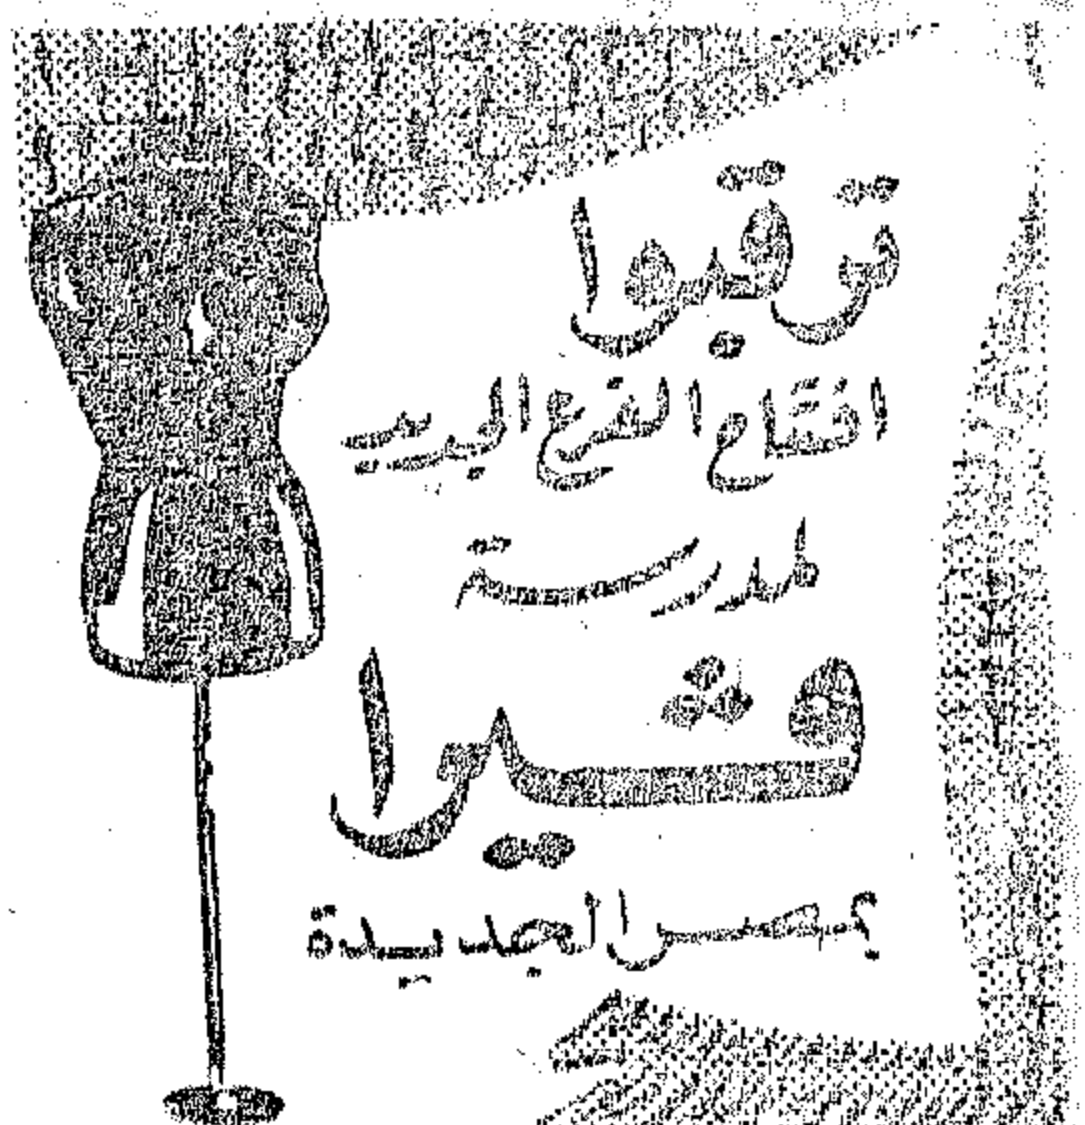 ترقبوا
افتتاح الفرع الجديد
لمدرسة
ڤيوا
بمصر الجديدة